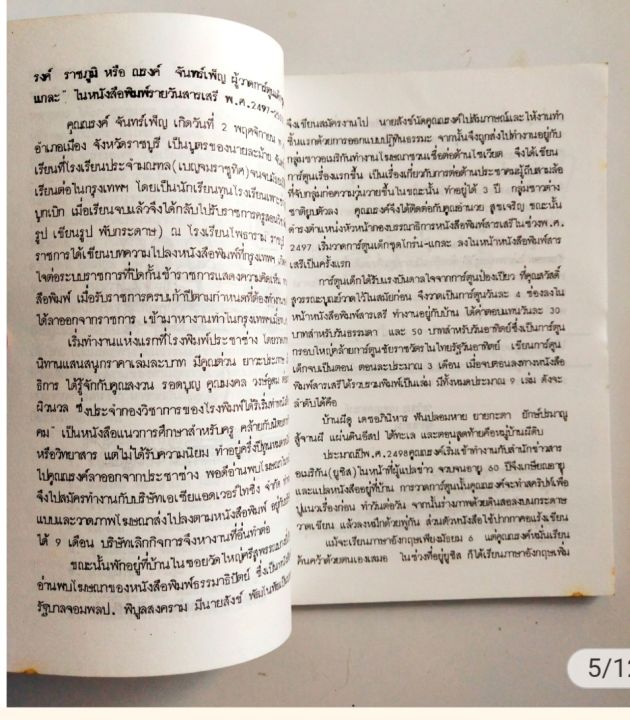 รงค์ ราชภูมิ หรือ ณรงค์ จันทร์เพ็ญ ผู้วาดการ์ตูน
แกละ" ในหนังสือพิมพ์รายวันสารเสรี พ.ศ.2497
คุณณรงค์ จันทร์เพ็ญ เกิดวันที่ 2 พฤศจิกายน
อำเภอเมือง จังหวัดราชบุรี เป็นบุตรของนายละม้าย
เรียนที่โรงเรียนประจำมณฑล(เบญจมราชูทิศ)จนจบมัธยม
เรียนต่อในกรุงเทพฯ โดยเป็นนักเรียนทุนโรงเรียนเพาะช่าง
บูกเบิก เมื่อเรียนจบแล้วจึงได้กลับไปรับราชการครูสอน
รูป เขียนรูป พับกระดาษ) ณ โรงเรียนโพธาราม ราชบุรี
ราชการได้เขียนบทความไปลงหนังสือพิมพ์ที่กรุงเทพฯ
ใจต่อระบบราชการที่ปิดกั้นข้าราชการแสดงความคิดเห็น
สือพิมพ์ เมื่อรับราชการครบเก้าปีตามกำหนดที่ต้องทำงาน
ได้ลาออกจากราชการ เข้ามาหางานทำในกรุงเทพฯ
เริ่มทำงานแห่งแรกที่โรงพิมพ์ประชาช่าง โดย
นิทานแสนสนุกราคาเล่มละบาท มีคุณถ่วน ยาวะประภาษ
ธิการ ได้รู้จักกับคุณสงวน รอดบุญ คุณมงคล วงษ์อุดม
ผิวนวล ซึ่งประจำกองวิชาการของโรงพิมพ์ได้ริเริ่มทำหนังสือ
คม" เป็นหนังสือแนวการศึกษาสำหรับครู คล้ายกับนิตยสาร
หรือวิทยาสาร แต่ไม่ได้รับความนิยม ทำอยู่ครึ่งปีทุน
ไปคุณรงค์ลาออกจากประชาช่าง พอดีอ่านพบโฆษณา
จึงไปสมัครทำงานกับบริษัทเอเชียแอดเวอร์ไทซิ่ง จำกัด
แบบและวาดภาพโฆษณาส่งไปลงตามหนังสือพิมพ์ อยู่
ได้ 9 เดือน บริษัทเลิกกิจการจึงหางานที่อื่นทำต่อ
ขณะนั้นพักอยู่ที่บ้านในซอยวัดใหญ่ศรีสุพรรณ
อ่านพบโฆษณาของหนังสือพิมพ์ธรรมาธิปัตย์ ซึ่งเป็นหนังสือ
รัฐบาลจอมพลป. พิบูลสงคราม มีนายสังข์
จึงเขียนสมัครงานไป นายสังข์นัดคุณณรงค์ไปสัมภาษณ์และให้งานทำ
ชิ้นแรกด้วยการออกแบบปฏิทินธรรมะ จากนั้นจึงถูกส่งไปทำงานอยู่กับ
กลุ่มชาวอเมริกันทำงานโฆษณาชวนเชื่อต่อต้านโซเวียต จึงได้เขียน
การ์ตูนเรื่องแรกขึ้น เป็นเรื่องเกี่ยวกับการต่อต้านประชาคมผู้ถีบสามล้อ
ที่จับกลุ่มก่อความวุ่นวายขึ้นในขณะนั้น ทำอยู่ได้ 3 ปี กลุ่มชาวต่าง
ชาติยุบตัวลง คุณณรงค์จึงได้ติดต่อกับคุณอำนวย สุขเจริญ ขณะนั้น
ดำรงตำแหน่งหัวหน้ากองบรรณาธิการหนังสือพิมพ์สารเสรีในช่วงพ.ศ.
2497 เริ่มวาดการ์ตูนเด็กชุดไกร่น-แกละ ลงในหน้าหนังสือพิมพ์สาร
เสรีเป็นครั้งแรก
การ์ตูนเด็กได้รับแรงบันดาลใจจากการ์ตูนป๋องเปี๊ยว ที่คุณสวัสดิ์
สุวรรณะบูลย์วาดไว้ในสมัยก่อน จึงวาดเป็นการ์ตูนวันละ 4 ช่องลงใน
หน้าหนังสือพิมพ์สารเสรี ทำงานอยู่กับบ้าน ได้ค่าตอบแทนวันละ 30
บาทสำหรับวันธรรมดา และ 50 บาทสำหรับวันอาทิตย์ซึ่งเป็นการ์ตูน
กรอบใหญ่คล้ายการ์ตูนชัยราชวัตรในไทยรัฐวันอาทิตย์ เขียนการ์ตูน
เด็กจบเป็นตอน ตอนละประมาณ 3 เดือน เมื่อจบตอนลงทางหนังสือ
พิมพ์สารเสรีได้รวบรวมพิมพ์เป็นเล่ม มีทั้งหมดประมาณ 9 เล่ม ดังจะ
ลำดับได้คือ
บ้านผีดุ เดชอภินิหาร ฟันปลอมหาย ยายกะตา ยักษ์ปรมาณู
สู้จานผี แผ่นดินอีสป ใต้ทะเล และตอนสุดท้ายคือหมู่บ้านผีดิบ
ประมาณปีพ.ศ.2498คุณณรงค์เริ่มเข้าทำงานกับสำนักข่าวสาร
อเมริกัน(ยูซิส)ในหน้าที่ผู้แปลข่าว จวบจนอายุ 60 ปีจึงเกษียณอายุ
และแปลหนังสืออยู่ที่บ้าน การวาดการ์ตูนนั้นคุณรงค์จะทำสคริปท์เพื่อ
ปูแนวเรื่องก่อน ทำวันต่อวัน จากนั้นร่างภาพด้วยดินสอลงบนกระดาษ
วาดเขียน แล้วลงหมึกด้วยพู่กัน ส่วนตัวหนังสือใช้ปากกาคอแร้งเขียน
แม้จะเรียนภาษาอังกฤษเพียงมัธยม 6 แต่คุณรงค์หมั่นเรียน
ค้นคว้าด้วยตนเองเสมอ ในช่วงที่อยู่ยูซิส ก็ได้เรียนภาษาอังกฤษเพิ่ม
5/12